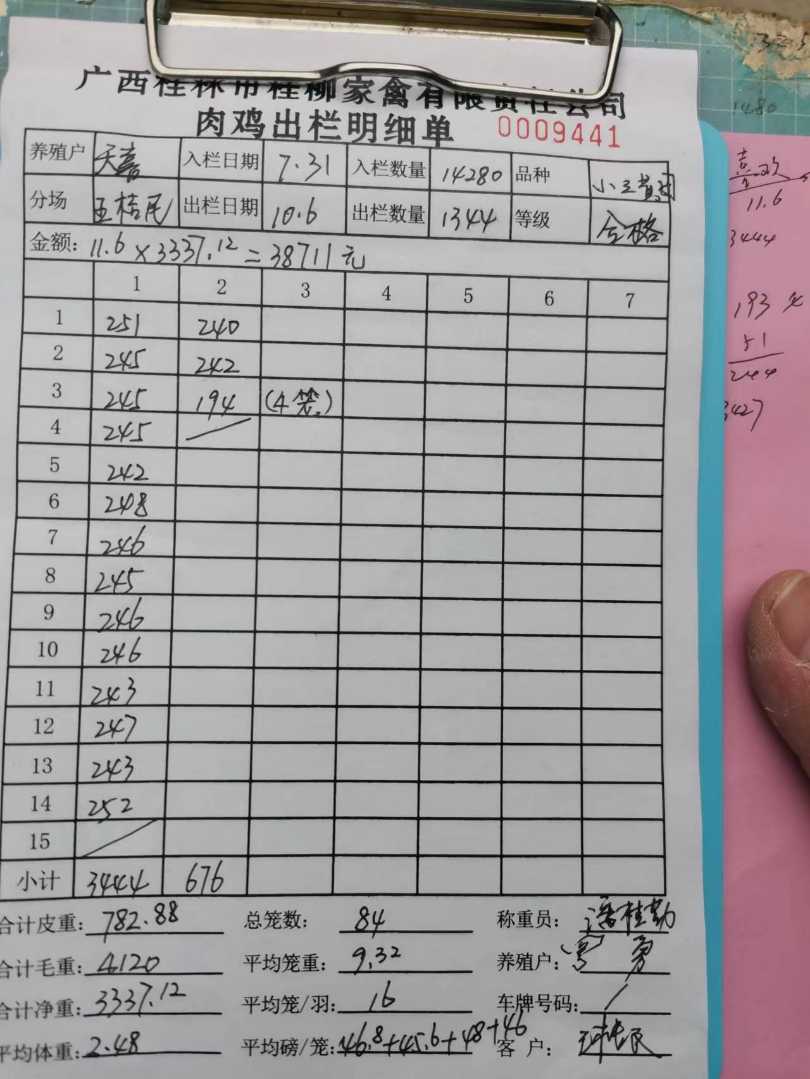 广西桂林市桂柳家禽有限责任公司
肉鸡出栏明细单 0009441
养殖户 天嘉 入栏日期 7.31 入栏数量 14280 品种
分场 出栏日期 10.6 出栏数量 1344 等级 合格
金额: 11.6×3337.12=38711元
1 2 3 4 5 6 7
1 251 240
2 245 242
3 245 194 (4笼)
4 245
5 242
6 248
7 246
8 245
9 246
10 246
11 243
12 247
13 243
14 252
15
小计 3444 676
合计皮重: 782.88 总笼数: 84 称重员: 潘桂勤
合计毛重: 4120 平均笼重: 9.32 养殖户:
合计净重: 3337.12 平均笼/羽: 16 车牌号码: /
平均体重: 2.48 平均磅/笼: 46.8+45.6+48+46 客户:
11.6
3444
193
51
244
3427